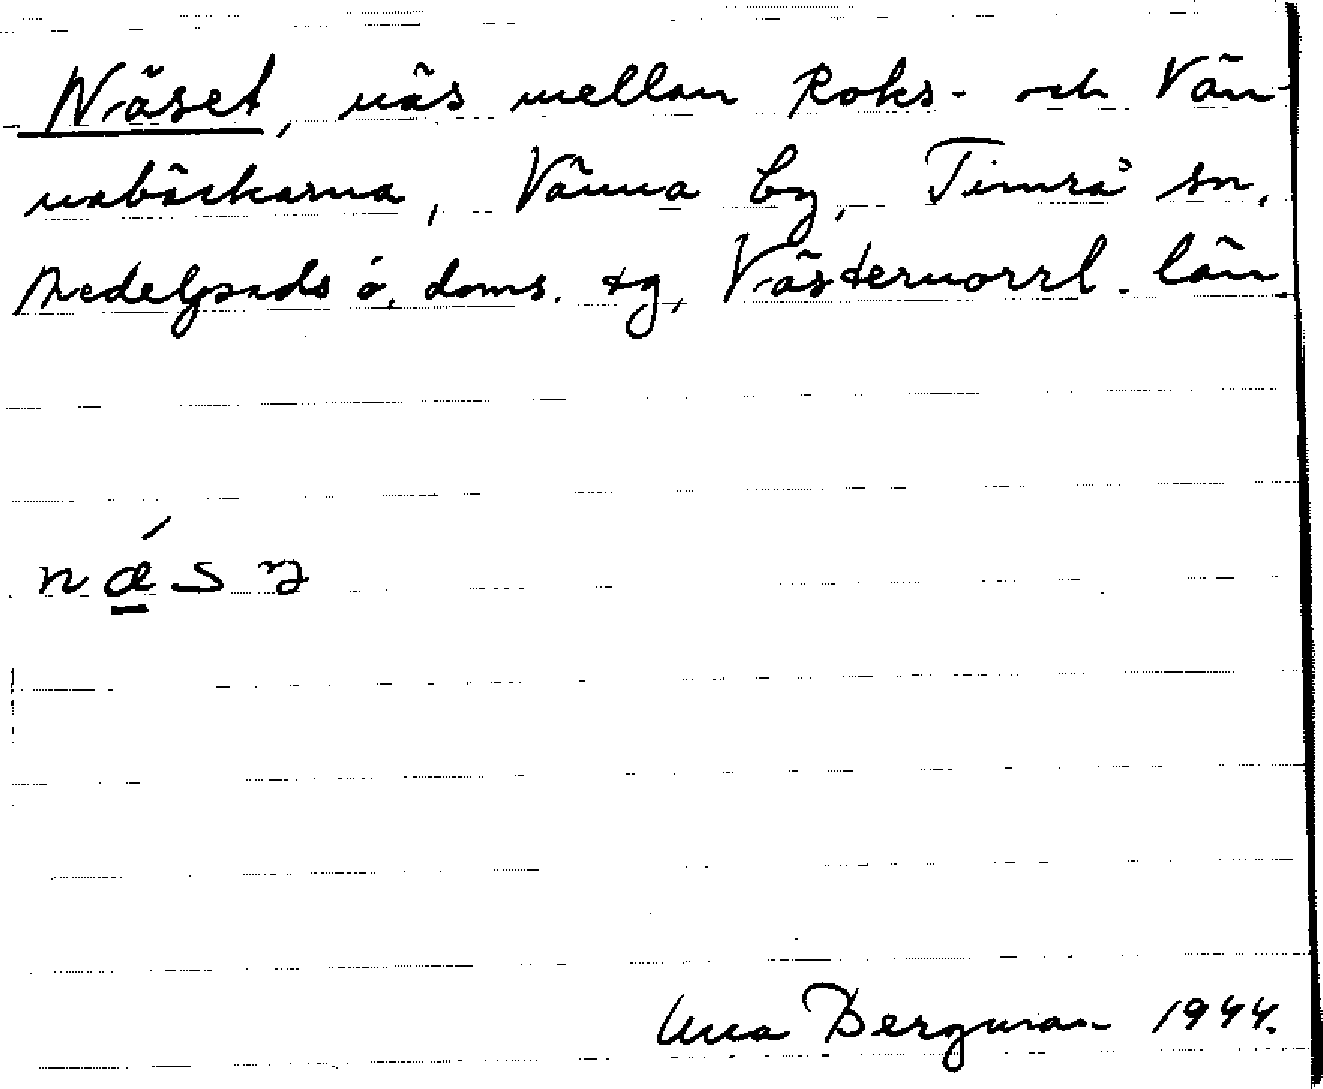 Näset, näs mellan Roks- och Vän
nabäckarna, Vänna by, Timrå sn.
Medelpads ö. doms. tg, Västernorrl. län
Una Bergman 1944.